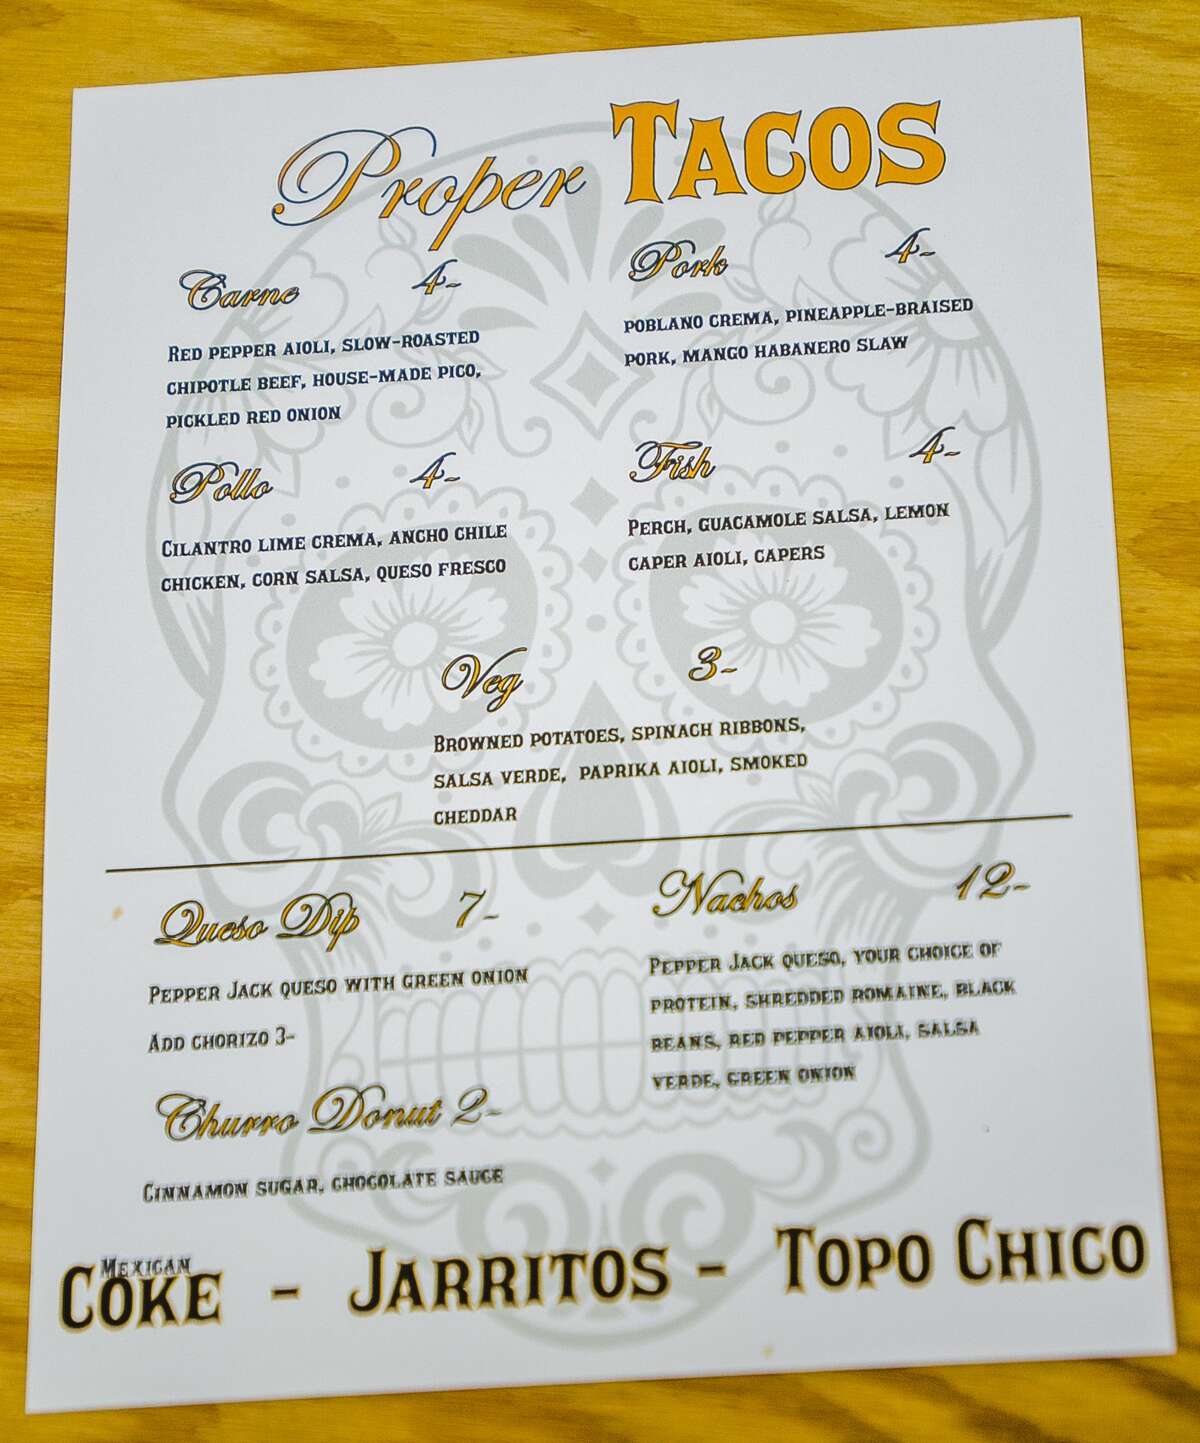 Proper TACOS
Carne 4-
RED PEPPER AIOLI, SLOW-ROASTED
CHIPOTLE BEEF, HOUSE-MADE PICO,
PICKLED RED ONION
Pork 4-
POBLANO CREMA, PINEAPPLE-BRAISED
PORK, MANGO HABANERO SLAW
Pollo 4-
CILANTRO LIME CREMA, ANCHO CHILE
CHICKEN, CORN SALSA, QUESO FRESCO
Fish 4-
PERCH, GUACAMOLE SALSA, LEMON
CAPER AIOLI, CAPERS
Veg 3-
BROWNED POTATOES, SPINACH RIBBONS,
SALSA VERDE, PAPRIKA AIOLI, SMOKED
CHEDDAR
Queso Dip 7-
PEPPER JACK QUESO WITH GREEN ONION
ADD CHORIZO 3-
Nachos 12-
PEPPER JACK QUESO, YOUR CHOICE OF
PROTEIN, SHREDDED ROMAINE, BLACK
BEANS, RED PEPPER AIOLI, SALSA
VERDE, GREEN ONION
Churro Donut 2-
CINNAMON SUGAR, CHOCOLATE SAUCE
MEXICAN
COKE - JARRITOS - TOPO CHICO